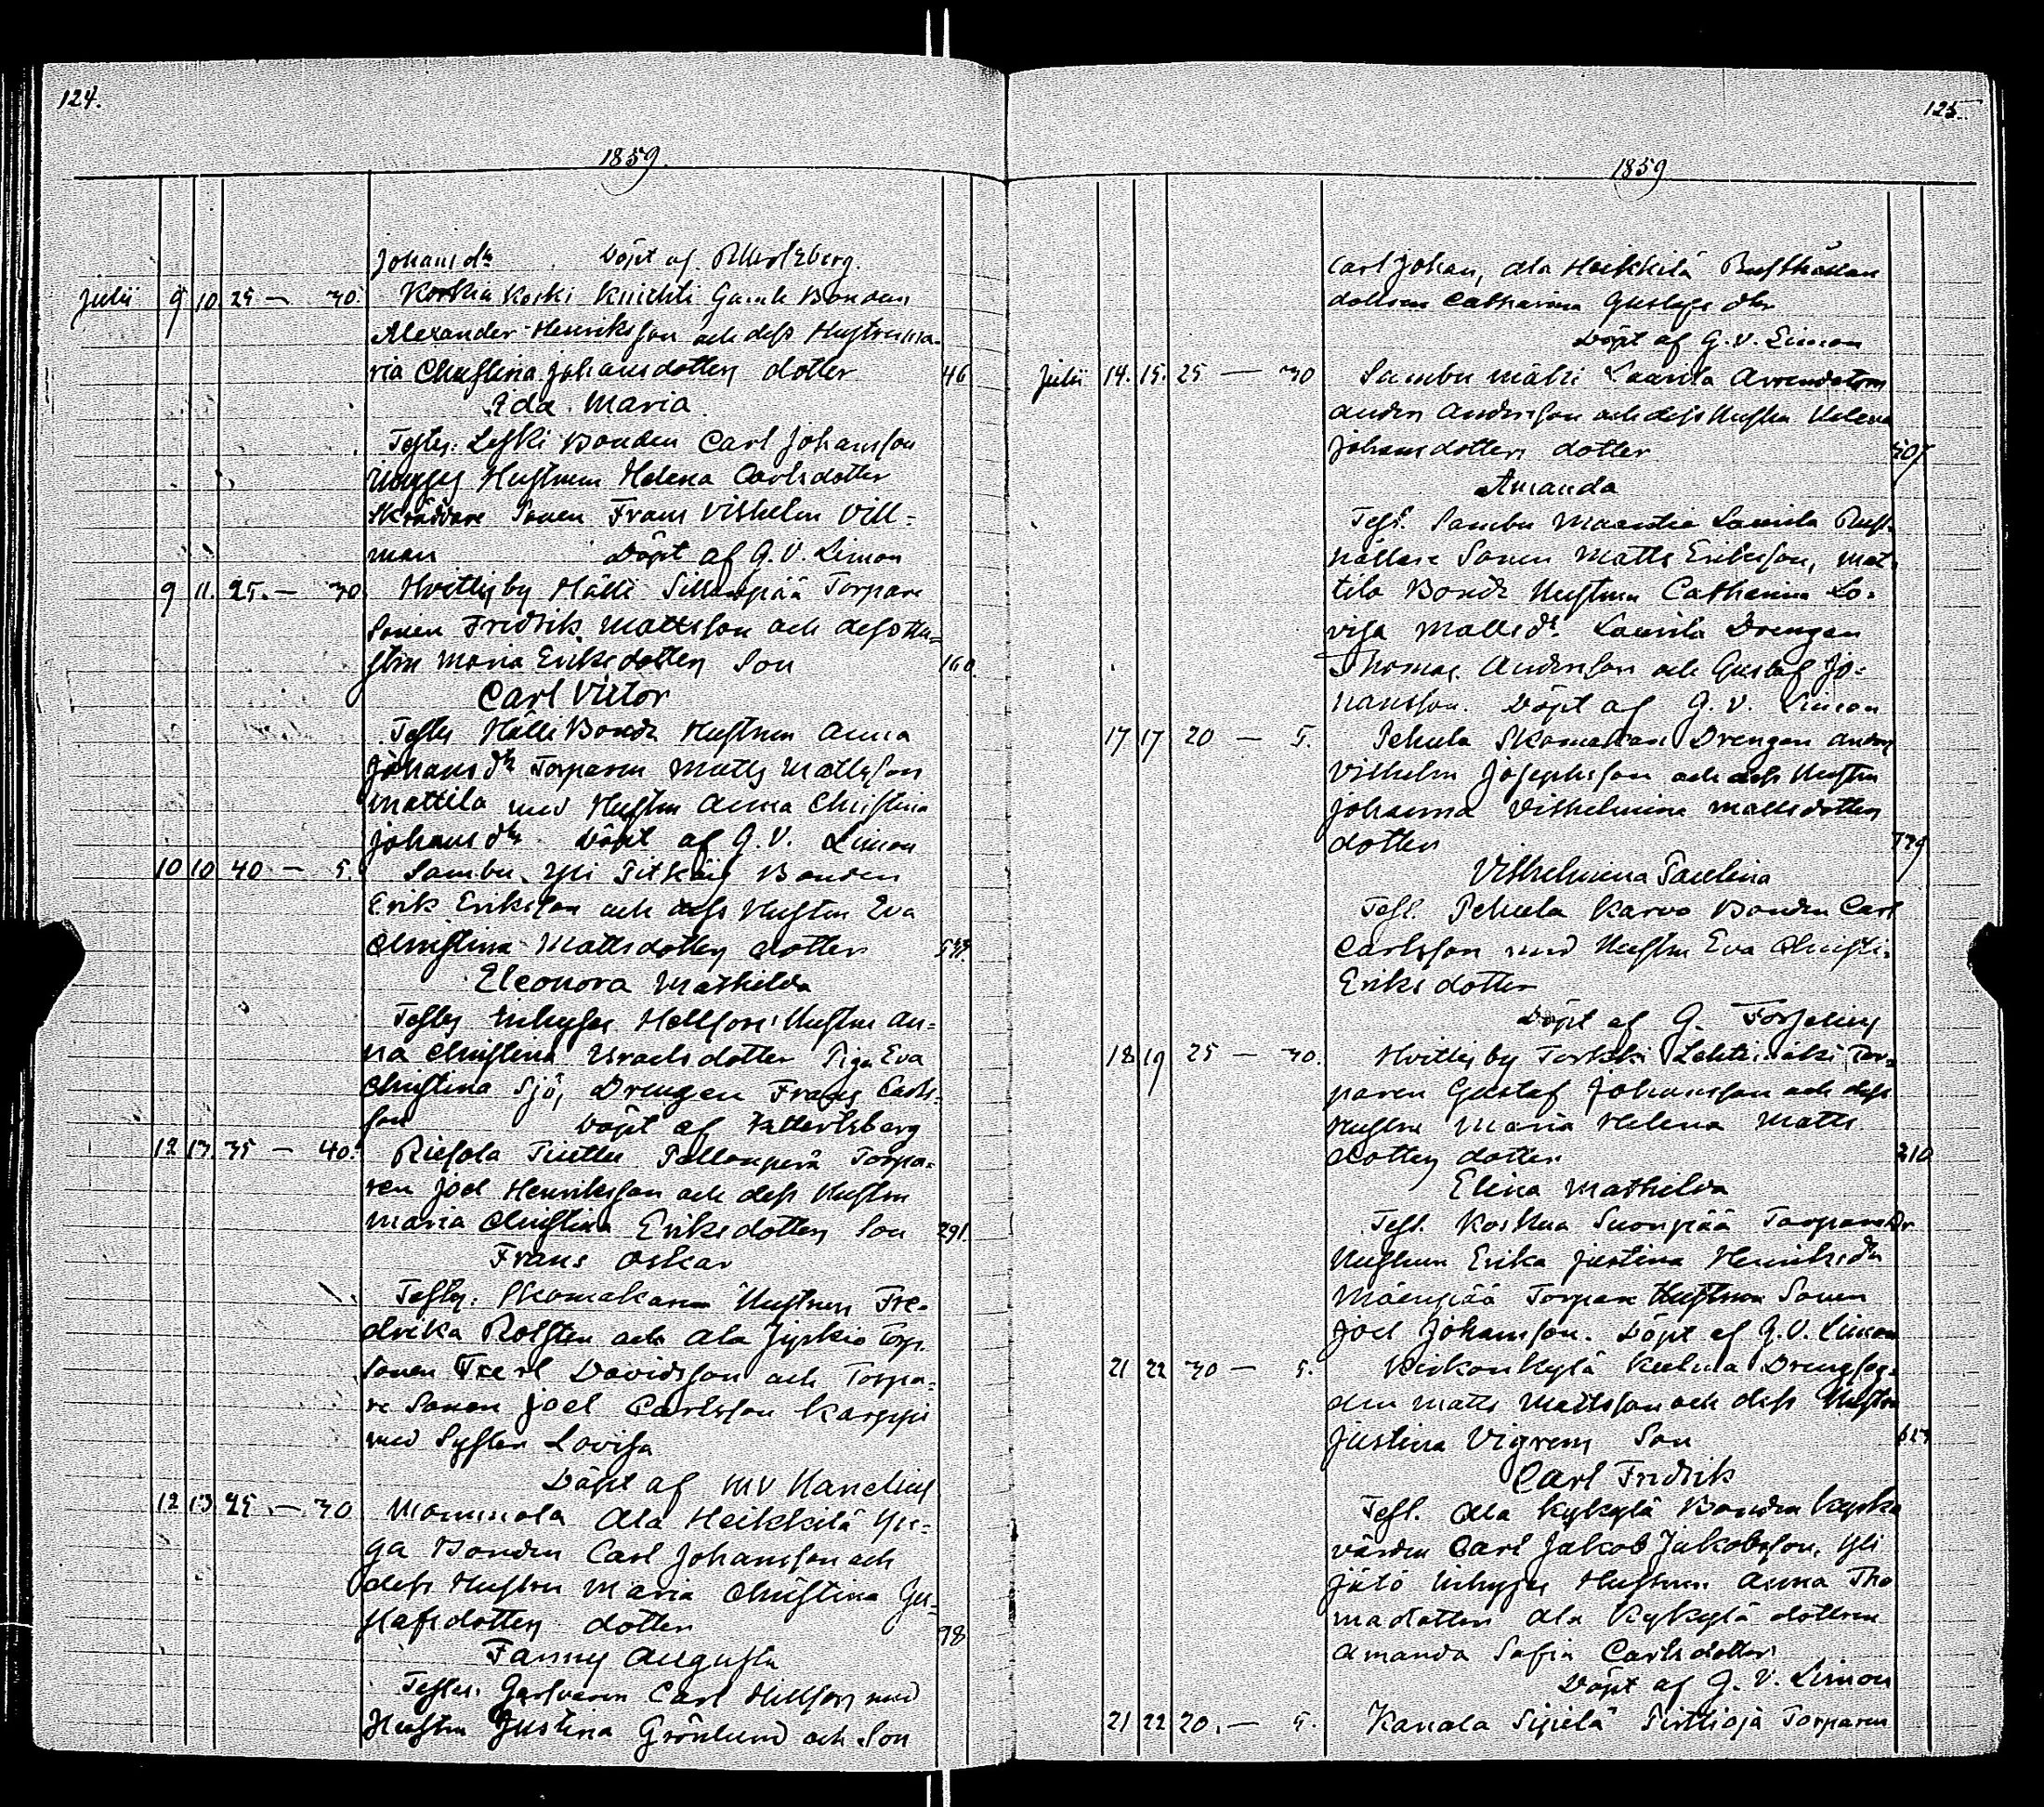 124.
1859.
Johans dr Döpt af
Julii 9 10 25 — 30. Koskia Koski Knichti Gamle Bonden
Alexander Henriksson och dess Hustru Ma-
ria Christina Johansdotters dotter 46
Ida Maria
Testes: Leski Bonden Carl Johansson
Hustrun Helena Carlsdotter
Skräddare Sonen Frans Vilhelm Vill-
man Döpt af G. V. Limon
9 11. 25. — 30. Hvittisby Hälli Sillanpää Torpare
Sonen Fredrik Mattsson och dess Hu-
stru Maria Eriksdotters Son 160.
Carl Victor
Testes Hälli Bonde Hustrun Anna
Johans dr Torparen Matts Mattsson
Mattila med Hustru Anna Christina
Johans dr Döpt af G. V. Limon
10 10 40 — 5. Sambu Yli Pitkäis Bonden
Erik Eriksson och dess Hustru Eva
Christina Mattsdotters dotter
Eleonora Mathilda
Testes Inhyses Hellfors Hustru An-
na Christina Israelsdotter Piga Eva
Christina Sjö, Drengen Frans Carls-
son Döpt af
12 13. 35 — 40. Riesola Tuittu Pellonperä Torpa-
ren Joel Henriksson och dess Hustru
Maria Christina Eriksdotters Son 291.
Frans Oskar
Testes. Skomakaren Hustrun Fre-
drika Rolsten och Ala Jipkio Torp.
Sonen Davidsson och Torpa-
re Sonen Joel Carlsson Karppi
med Syster Lovisa
Döpt af MV Hanelius
12 13 25. — 30 Mommola Ala Heikkilä Yn-
ga Bonden Carl Johansson och
dess Hustru Maria Christina Gu-
stafsdotters dotter 98
Fanny Augusta
Testes. Garfvaren Carl Hellfors med
Hustru Justina Grönlund och Son
125.
1859
Carl Johan, Ala Heikkilä Rusthållar
dottren Catharina Gustafs dtr
Döpt af G. V. Limon
Julii 14. 15. 25 — 30 Sambu Mäki Laurila Arrendatorn
Anders Andersson och dess Hustru Helena
Johansdotters dotter 507
Amanda
Test. Sambu Maantie Laurila Rust-
hållare Sonen Matts Eriksson, Mat-
tila Bonde Hustrun Catharina Lo-
visa Matts dr. Laurila Drengen
Thomas Andersson och Gustaf Jo-
hansson. Döpt af G. V. Limon
17 17 20 — 5. Pehula Skomakare Drengen Anders
Vilhelm Josephsson och dess Hustru
Johanna Vilhelmina Mattsdotters
dotter
Vilhelmina Paulina
Test. Pehula Karvo Bonden Carl
Carlsson med Hustru Eva Christi.
Eriksdotter
Döpt af G. Forselius
18 19 25 — 30. Hvittisby Turkki Lehtimäki Tor-
paren Gustaf Johansson och dess
Hustru Maria Helena Matts
dotters dotter 210
Elina Mathilda
Test. Koskua Suonpää Torpare
Hustrun Erika Justina Henriksdr
Mäenpää Torpare Hustrun Sonen
Joel Johansson. Döpt af G. V. Limon
21 22 30 — 5. Keikonkylä Kulma Drengfog-
den Matts Mattsson och dess Hustru
Justina Vigrens Son
Carl Fredrik
Test. Ala Kykylä Bonden Kyrko
värden Carl Jakob Jakobsson, Yli
Inhyses Hustrun Anna Tho
madotter Ala Kykylä dottren
Amanda Sofia Carlsdotter
Döpt af G. V. Limon
21 22 20. — 5. Kanala Sipilä Pirttioja Torparen